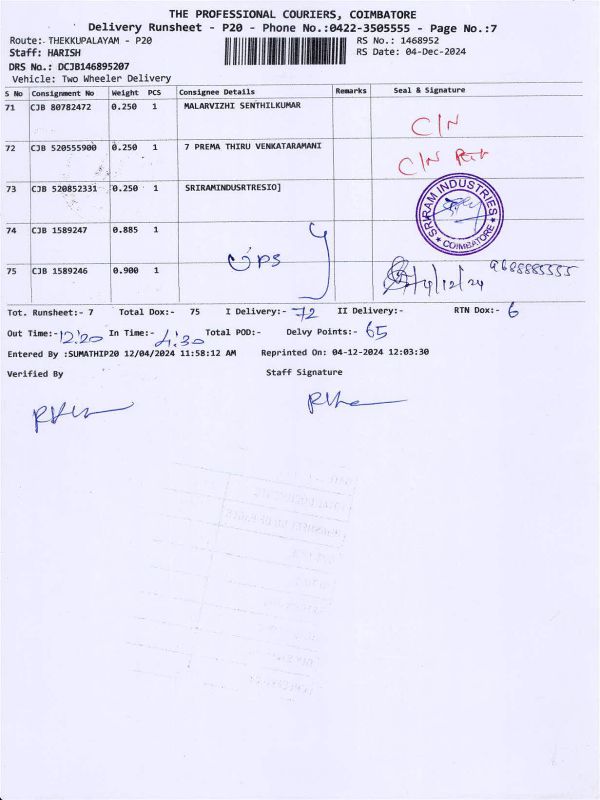 THE PROFESSIONAL COURIERS, COIMBATORE
Delivery Runsheet - P20 - Phone No.:0422-3505555 - Page No.:7
Route:- THEKKUPALAYAM - P20
RS No.: 1468952
Staff: HARISH
RS Date: 04-Dec-2024
DRS No.: DCJB146895207
Vehicle: Two Wheeler Delivery
S No Consignment No Weight PCS Consignee Details Remarks Seal & Signature
71 CJB 80782472 0.250 1 MALARVIZHI SENTHILKUMAR
C/N
72 CJB 520555900 0.250 1 7 PREMA THIRU VENKATARAMANI
C/N
73 CJB 520852331 0.250 1 SRIRAMINDUSRTRESIO]
SRIRAM INDUSTRIES
* COIMBATORE *
74 CJB 1589247 0.885 1
75 CJB 1589246 0.900 1
4/12/24
Tot. Runsheet:- 7 Total Dox:- 75 I Delivery:- 72 II Delivery:- RTN Dox:- 6
Out Time:- 12.20 In Time:- 4.30 Total POD:- Delvy Points:- 65
Entered By :SUMATHIP20 12/04/2024 11:58:12 AM Reprinted On: 04-12-2024 12:03:30
Verified By Staff Signature